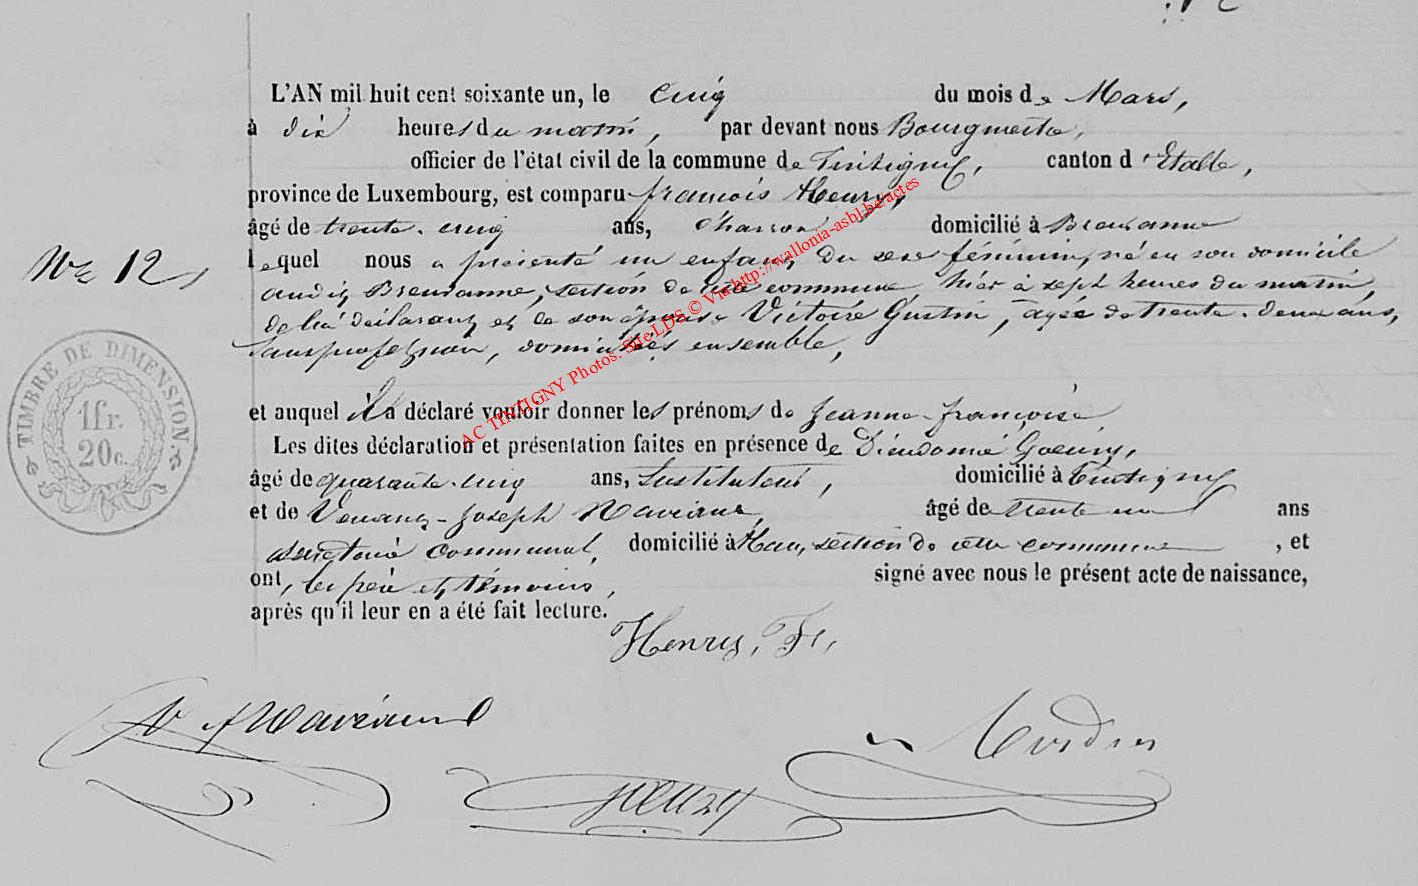 L'AN mil huit cent soixante un, le cinq du mois de Mars,
à dix heures du matin, par devant nous Bourgmestre,
officier de l'état civil de la commune de Tintigny, canton d'Etalle,
province de Luxembourg, est comparu françois Henry,
âgé de trente-cinq ans, Charron domicilié à Breuvanne
No 12, lequel nous a présenté un enfant, du sexe féminin, né en son domicile
audit, Breuvanne, section de cette commune hier à sept heures du matin,
de lui déclarant et de son épouse Victoire Gustin, agée de trente-deux ans,
sans profession, domiciliés ensemble,
TIMBRE DE DIMENSION
1fr. 20c.
et auquel il a déclaré vouloir donner les prénoms de Jeanne-françoise
Les dites déclaration et présentation faites en présence de Dieudonné Goeury,
âgé de quarante-cinq ans, Instituteur, domicilié à Tintigny
et de Venance-Joseph Naviaux, âgé de trente un ans
secrétaire communal, domicilié à Han, section de cette commune, et
ont, les père et témoins, signé avec nous le présent acte de naissance,
après qu'il leur en a été fait lecture.
Henry, Fs,
AC TINTIGNY Photos. Site LDS © Via http://wallonia-asbl.be/actes